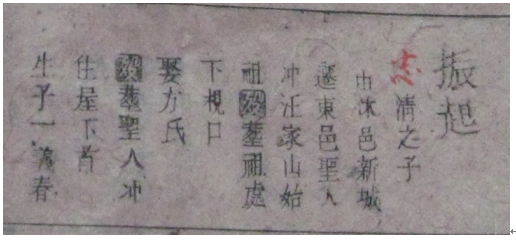 振起
志清之子
由本邑新城
遷東邑聖人
冲汪家山始
祖歿塟祖處
下梘口
娶方氏
歿塟聖人冲
住屋下首
生子一春